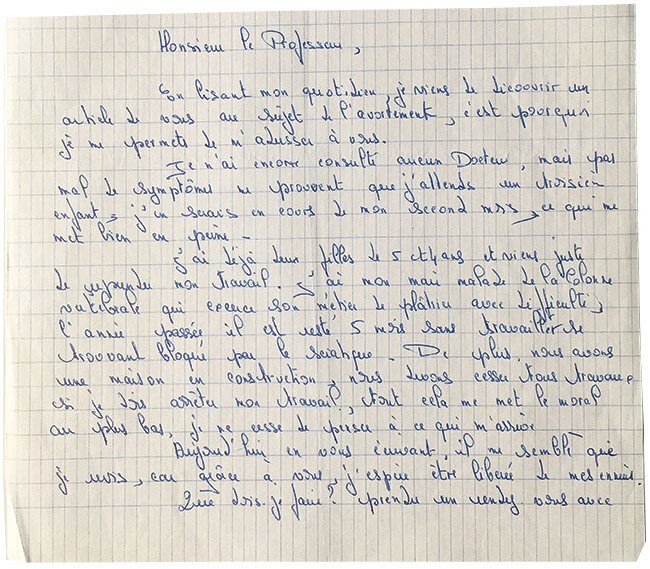 Monsieur le Professeur,
En lisant mon quotidien, je viens de découvrir un
article de vous au sujet de l'avortement, c'est pourquoi
je me permets de m'adresser à vous.
Je n'ai encore consulté aucun Docteur, mais pas
mal de symptômes me prouvent que j'attends un troisième
enfant, j'en serais en cours de mon second mois, ce qui me
met bien en peine -
J'ai déjà deux filles de 5 et 4 ans et viens juste
de reprendre mon travail. J'ai mon mari malade de la Colonne
vertébrale qui exerce son métier de plâtrier avec difficulté,
l'année passée il est resté 5 mois sans travailler se
trouvant bloqué par le sciatique - De plus nous avons
une maison en construction, nous devons cesser tous travaux
si je dois arrêter mon travail, tout cela me met le moral
au plus bas, je ne cesse de penser à ce qui m'arrive
Aujourd'hui en vous écrivant, il me semble que
je revis, car grâce à vous, j'espère être libérée de mes ennuis.
Que dois-je faire? prendre un rendez vous avec